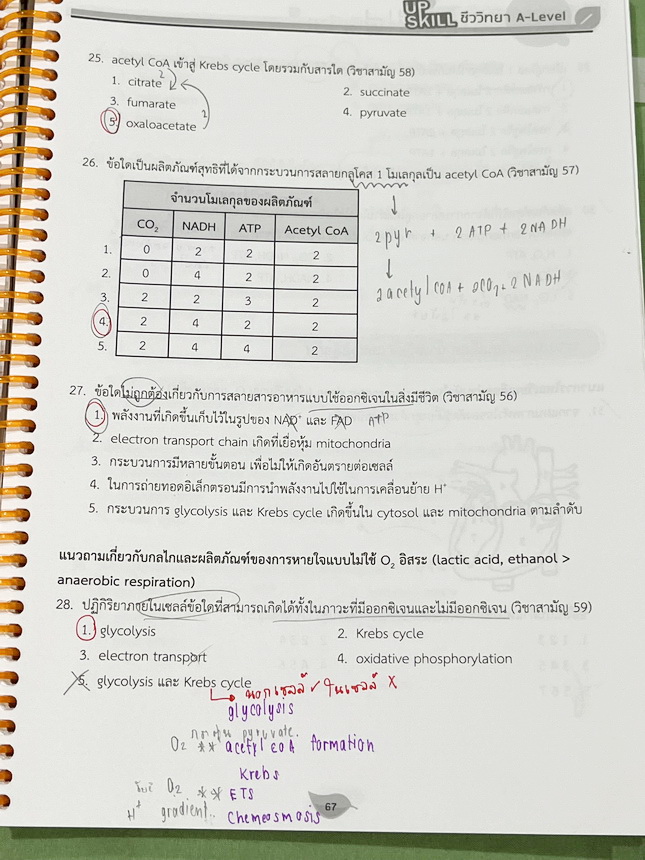 UP SKILL ชีววิทยา A-Level
25. acetyl CoA เข้าสู่ Krebs cycle โดยรวมกับสารใด (วิชาสามัญ 58)
1. citrate 2. succinate
3. fumarate 4. pyruvate
5. oxaloacetate
26. ข้อใดเป็นผลิตภัณฑ์สุทธิที่ได้จากกระบวนการสลายกลูโคส 1 โมเลกุลเป็น acetyl CoA (วิชาสามัญ 57)
จำนวนโมเลกุลของผลิตภัณฑ์
CO₂ NADH ATP Acetyl CoA
1. 0 2 2 2
2. 0 4 2 2
3. 2 2 3 2
4. 2 4 2 2
5. 2 4 4 2
2 pyr + 2 ATP + 2 NADH
2 acetyl COA + 2CO₂ + 2 NADH
27. ข้อใดไม่ถูกต้องเกี่ยวกับการสลายสารอาหารแบบใช้ออกซิเจนในสิ่งมีชีวิต (วิชาสามัญ 56)
1. พลังงานที่เกิดขึ้นเก็บไว้ในรูปของ NAD⁺ และ FAD ATP
2. electron transport chain เกิดที่เยื่อหุ้ม mitochondria
3. กระบวนการมีหลายขั้นตอน เพื่อไม่ให้เกิดอันตรายต่อเซลล์
4. ในการถ่ายทอดอิเล็กตรอนมีการนำพลังงานไปใช้ในการเคลื่อนย้าย H⁺
5. กระบวนการ glycolysis และ Krebs cycle เกิดขึ้นใน cytosol และ mitochondria ตามลำดับ
แนวถามเกี่ยวกับกลไกและผลิตภัณฑ์ของการหายใจแบบไม่ใช้ O₂ อิสระ (lactic acid, ethanol >
anaerobic respiration)
28. ปฏิกิริยาภายในเซลล์ข้อใดที่สามารถเกิดได้ทั้งในภาวะที่มีออกซิเจนและไม่มีออกซิเจน (วิชาสามัญ 59)
1. glycolysis 2. Krebs cycle
3. electron transport 4. oxidative phosphorylation
5. glycolysis และ Krebs cycle
นอกเซลล์ ✓ ในเซลล์ X
glycolysis
pyruvate.
O₂ ** acetyl COA formation
Krebs
O₂ ** ETS
H⁺ gradient.. chemeosmosis
67